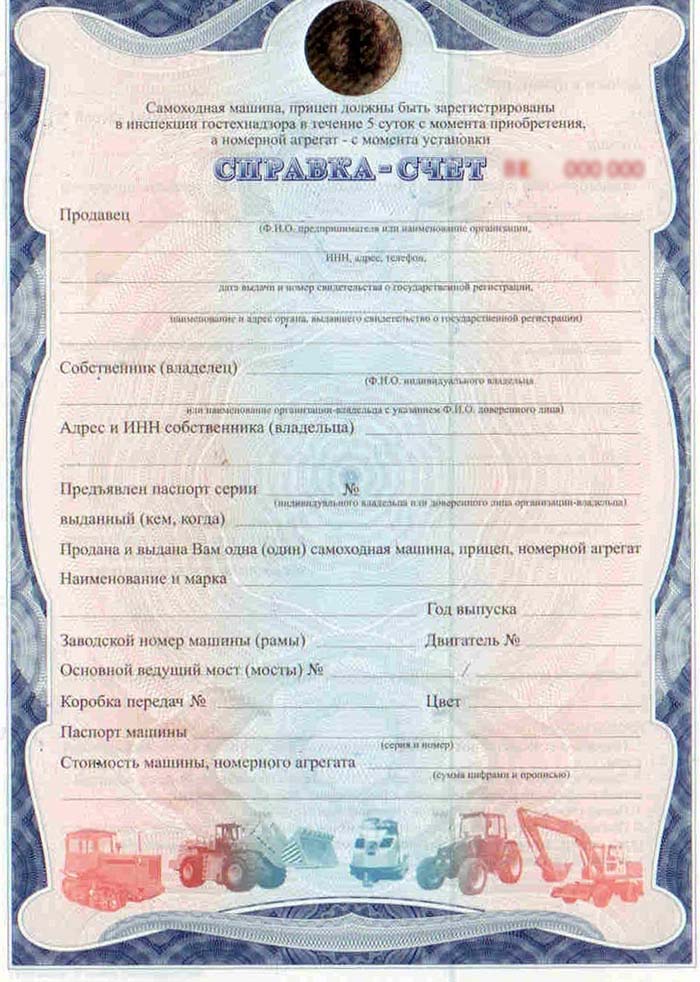 Самоходная машина, прицеп должны быть зарегистрированы
в инспекции гостехнадзора в течение 5 суток с момента приобретения,
а номерной агрегат - с момента установки
СПРАВКА - СЧЕТ 000 000
Продавец
(Ф.И.О. предпринимателя или наименование организации,
ИНН, адрес, телефон,
дата выдачи и номер свидетельства о государственной регистрации,
наименование и адрес органа, выдавшего свидетельство о государственной регистрации)
Собственник (владелец)
(Ф.И.О. индивидуального владельца
или наименование организации-владельца с указанием Ф.И.О. доверенного лица)
Адрес и ИНН собственника (владельца)
Предъявлен паспорт серии №
(индивидуального владельца или доверенного лица организации-владельца)
выданный (кем, когда)
Продана и выдана Вам одна (один) самоходная машина, прицеп, номерной агрегат
Наименование и марка
Год выпуска
Заводской номер машины (рамы) Двигатель №
Основной ведущий мост (мосты) № /
Коробка передач № Цвет
Паспорт машины
(серия и номер)
Стоимость машины, номерного агрегата
(сумма цифрами и прописью)